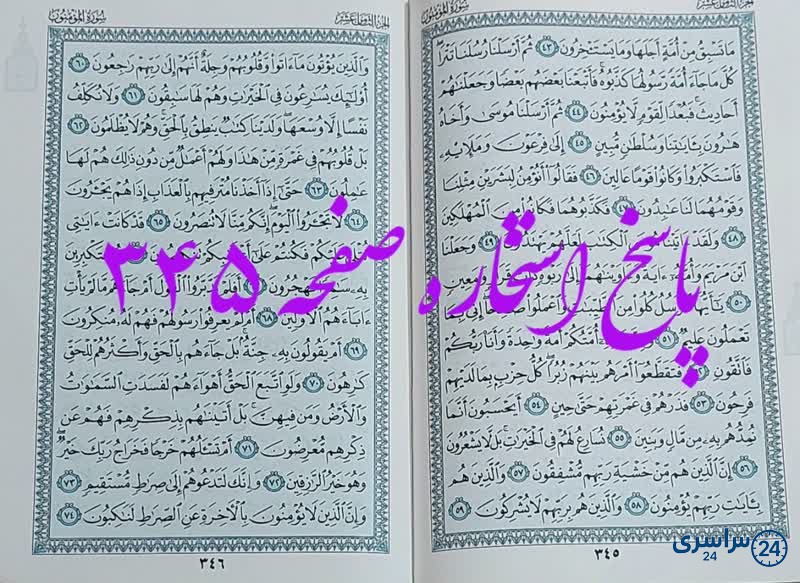 الجزء الثامن عشر
سورة المؤمنون
مَا تَسْبِقُ مِنْ أُمَّةٍ أَجَلَهَا وَمَا يَسْتَـْٔخِرُونَ ٤٣ ثُمَّ أَرْسَلْنَا رُسُلَنَا تَتْرَا
كُلَّ مَا جَآءَ أُمَّةً رَّسُولُهَا كَذَّبُوهُ فَأَتْبَعْنَا بَعْضَهُم بَعْضًا وَجَعَلْنَٰهُمْ
أَحَادِيثَ فَبُعْدًا لِّقَوْمٍ لَّا يُؤْمِنُونَ ٤٤ ثُمَّ أَرْسَلْنَا مُوسَىٰ وَأَخَاهُ
هَٰرُونَ بِـَٔايَٰتِنَا وَسُلْطَٰنٍ مُّبِينٍ ٤٥ إِلَىٰ فِرْعَوْنَ وَمَلَإِيْهِۦ
فَٱسْتَكْبَرُوا۟ وَكَانُوا۟ قَوْمًا عَالِينَ ٤٦ فَقَالُوٓا۟ أَنُؤْمِنُ لِبَشَرَيْنِ مِثْلِنَا
وَقَوْمُهُمَا لَنَا عَٰبِدُونَ ٤٧ فَكَذَّبُوهُمَا فَكَانُوا۟ مِنَ ٱلْمُهْلَكِينَ
٤٨ وَلَقَدْ ءَاتَيْنَا ٱلْكِتَٰبَ لَعَلَّهُمْ يَهْتَدُونَ ٤٩ وَجَعَلْنَا
ٱبْنَ مَرْيَمَ وَأُمَّهُۥٓ ءَايَةً وَءَاوَيْنَٰهُمَآ إِلَىٰ رَبْوَةٍ وَمَعِينٍ
٥٠ يَٰٓأَيُّهَا كُلُوا۟ مِنَ ٱلطَّيِّبَٰتِ وَٱعْمَلُوا۟ إِنِّى بِمَا
تَعْمَلُونَ عَلِيمٌ ٥١ أُمَّتُكُمْ أُمَّةً وَٰحِدَةً وَأَنَا۠ رَبُّكُمْ
فَٱتَّقُونِ ٥٢ فَتَقَطَّعُوٓا۟ أَمْرَهُم بَيْنَهُمْ زُبُرًا كُلُّ حِزْبٍۭ بِمَا لَدَيْهِمْ
فَرِحُونَ ٥٣ فَذَرْهُمْ فِى غَمْرَتِهِمْ حَتَّىٰ حِينٍ ٥٤ أَيَحْسَبُونَ أَنَّمَا
نُمِدُّهُم بِهِۦ مِن مَّالٍ وَبَنِينَ ٥٥ نُسَارِعُ لَهُمْ فِى ٱلْخَيْرَٰتِ بَل لَّا يَشْعُرُونَ
٥٦ إِنَّ ٱلَّذِينَ هُم مِّنْ خَشْيَةِ رَبِّهِم مُّشْفِقُونَ ٥٧ وَٱلَّذِينَ هُم
بِـَٔايَٰتِ رَبِّهِمْ يُؤْمِنُونَ ٥٨ وَٱلَّذِينَ هُم بِرَبِّهِمْ لَا يُشْرِكُونَ ٥٩
٣٤٥
الجزء الثامن عشر
سورة المؤمنون
وَٱلَّذِينَ يُؤْتُونَ مَآ ءَاتَوا۟ وَّقُلُوبُهُمْ وَجِلَةٌ أَنَّهُمْ إِلَىٰ رَبِّهِمْ رَٰجِعُونَ ٦٠
أُو۟لَٰٓئِكَ يُسَٰرِعُونَ فِى ٱلْخَيْرَٰتِ وَهُمْ لَهَا سَٰبِقُونَ ٦١ وَلَا نُكَلِّفُ
نَفْسًا إِلَّا وُسْعَهَا وَلَدَيْنَا كِتَٰبٌ يَنطِقُ بِٱلْحَقِّ وَهُمْ لَا يُظْلَمُونَ ٦٢
بَلْ قُلُوبُهُمْ فِى غَمْرَةٍ مِّنْ هَٰذَا وَلَهُمْ أَعْمَٰلٌ مِّن دُونِ ذَٰلِكَ هُمْ لَهَا
عَٰمِلُونَ ٦٣ حَتَّىٰٓ إِذَآ أَخَذْنَا مُتْرَفِيهِم بِٱلْعَذَابِ إِذَا هُمْ يَجْـَٔرُونَ
٦٤ لَا تَجْـَٔرُوا۟ ٱلْيَوْمَ إِنَّكُم مِّنَّا لَا تُنصَرُونَ ٦٥ قَدْ كَانَتْ ءَايَٰتِى
تُتْلَىٰ عَلَيْكُمْ فَكُنتُمْ عَلَىٰٓ مُسْتَكْبِرِينَ
بِهِۦ تَهْجُرُونَ ٦٧ أَفَلَمْ يَدَّبَّرُوا۟ ٱلْقَوْلَ أَمْ جَآءَهُم مَّا لَمْ يَأْتِ
ءَابَآءَهُمُ ٱلْأَوَّلِينَ ٦٨ أَمْ لَمْ يَعْرِفُوا۟ رَسُولَهُمْ فَهُمْ لَهُۥ مُنكِرُونَ
٦٩ أَمْ يَقُولُونَ بِهِۦ جِنَّةٌۢ بَلْ جَآءَهُم بِٱلْحَقِّ وَأَكْثَرُهُمْ لِلْحَقِّ
كَٰرِهُونَ ٧٠ وَلَوِ ٱتَّبَعَ ٱلْحَقُّ أَهْوَآءَهُمْ لَفَسَدَتِ ٱلسَّمَٰوَٰتُ
وَٱلْأَرْضُ وَمَن فِيهِنَّ بَلْ أَتَيْنَٰهُم بِذِكْرِهِمْ فَهُمْ عَن
ذِكْرِهِم مُّعْرِضُونَ ٧١ أَمْ تَسْـَٔلُهُمْ خَرْجًا فَخَرَاجُ رَبِّكَ خَيْرٌ
وَهُوَ خَيْرُ ٱلرَّٰزِقِينَ ٧٢ وَإِنَّكَ لَتَدْعُوهُمْ إِلَىٰ صِرَٰطٍ مُّسْتَقِيمٍ ٧٣
وَإِنَّ ٱلَّذِينَ لَا يُؤْمِنُونَ بِٱلْـَٔاخِرَةِ عَنِ ٱلصِّرَٰطِ لَنَٰكِبُونَ ٧٤
٣٤٦
پاسخ استخاره صفحه ۳۴۵
سراسری 24
24